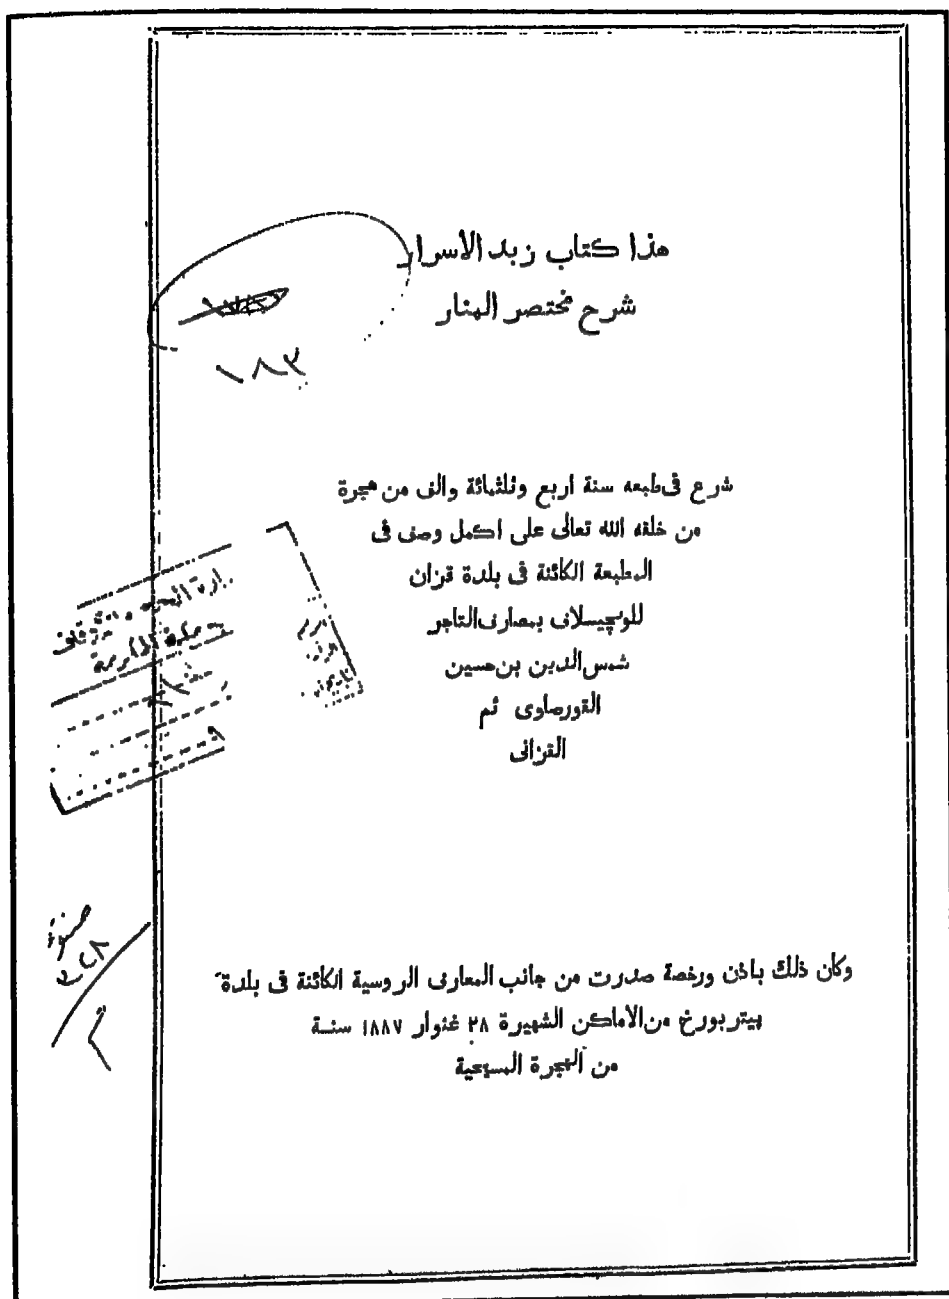 هذا كتاب زبد الاسرار
شرح مختصر المنار
١٨٣
شرع فى طبعه سنة اربع وثلثمائة والف من هجرة
من خلقه الله تعالى على اكمل وصف فى
المطبعة الكائنة فى بلدة قزان
للوچيسلاف بمصارف التاجر
شمس الدين بن حسين
القورصاوى ثم
القزانى
مكة المكرمة
وكان ذلك باذن ورخصة صدرت من جانب المعارف الروسية الكائنة فى بلدة
بيتربورخ من الاماكن الشهيرة ٢٨ غنوار ١٨٨٧ سنة
من الهجرة المسيحية